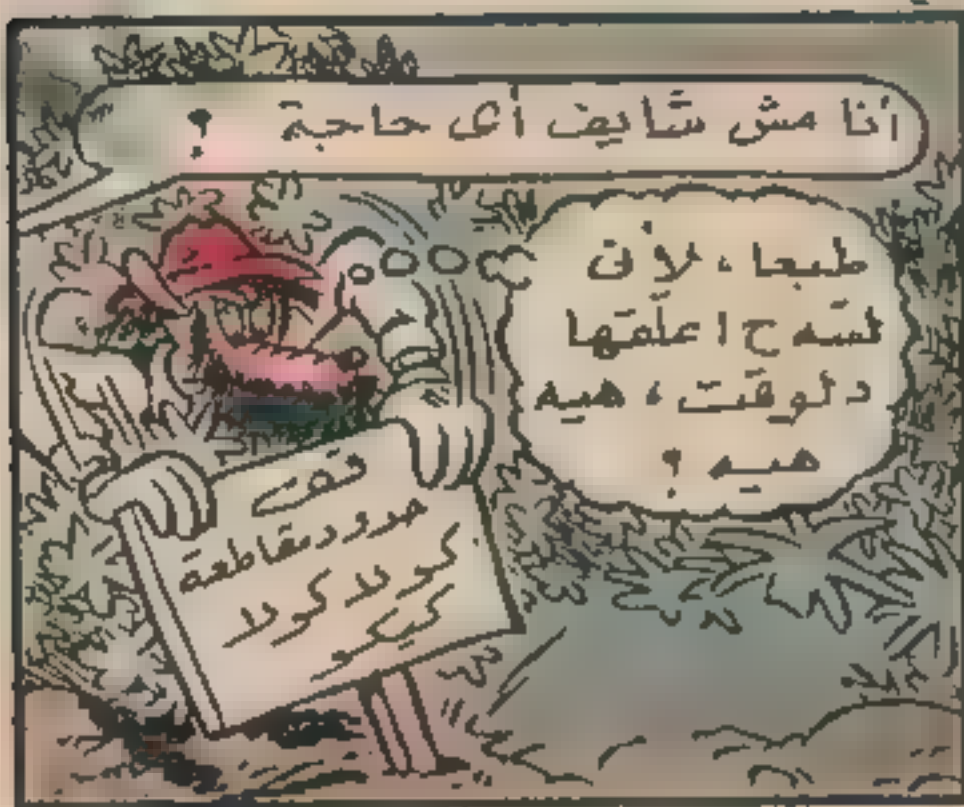 أنا مش شايف أى حاجة ؟
طبعا ، لأن
لسّه ح اعلّقها
دلوقت ، هيه
هيه ؟
قف
حدود مقاطعة
كولا كولا
كيكو